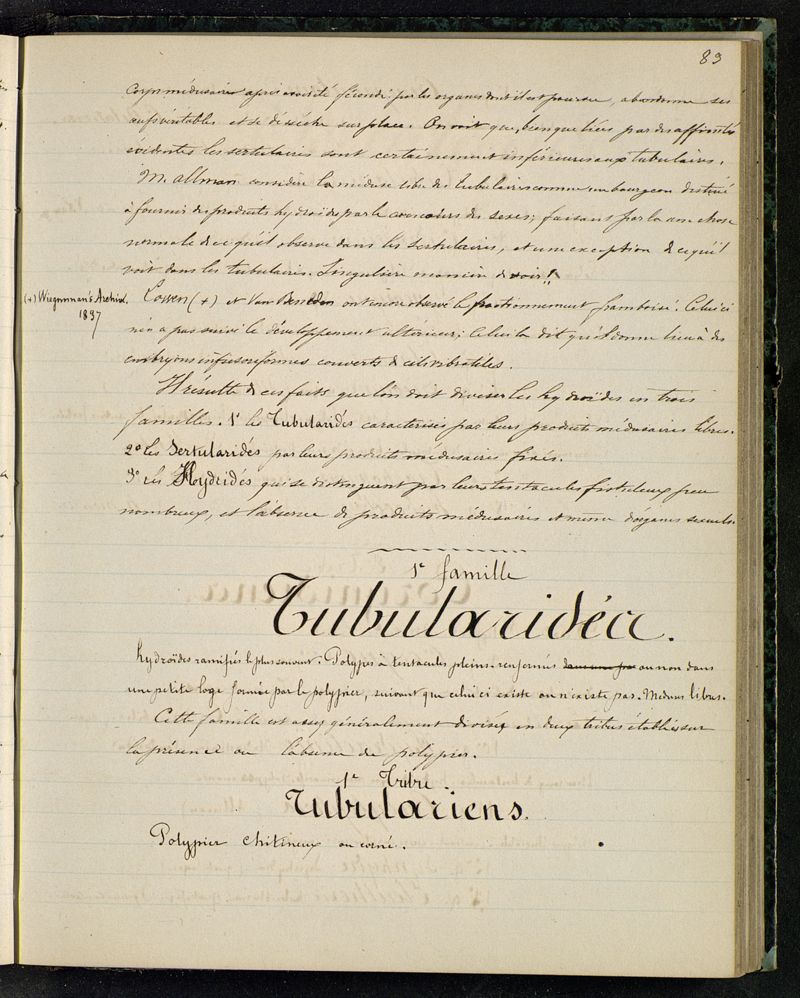 89
Corps médusaire après avoir été fécondé par les organes dont il est pourvu, abandonne ses
œufs véritables et se dessèche sur place. On voit que, bien que liées par des affinités
évidentes les sertulaires sont certainement inférieures aux tubulaires.
M. Allman considère la méduse libre des tubulaires comme un bourgeon destiné
à fournir des produits hydroïdes par le concours des sexes; faisant par là une chose
normale de ce qu'il observe dans les sertulaires, et une exception de ce qu'il
voit dans les tubulaires. Singulière manière de voir!!
(+) Wiegmman's Archiv.
1837
Loven (+) et Van Beneden ont encore observé le fractionnement framboisé. Celui ci
n'en a pas suivi le développement ultérieur; celui la dit qu'il donne lieu à des
embryons infusoriformes couverts de cils vibratiles.
Il résulte de ces faits que l'on doit diviser les hydroïdes en trois
familles. 1° les Tubularidés caractérisés par leurs produits médusaires libres.
2° les Sertularidés par leurs produits médusaires fixés.
3° les Hydridés qui se distinguent par leurs tentacules fistuleux peu
nombreux, et l'absence de produits médusaires et même d'organes sexuels.
1e famille
Tubularidéa.
hydroïdes ramifiés le plus souvent. Polypes à tentacules pleins. renfermés ou non dans
une petite loge formée par le polypier, suivant que celui ci existe ou n'existe pas. Meduses libres.
Cette famille est assez généralement divisée en deux tribus établies sur
la présence ou l'absence de polypier.
1e Tribu.
Tubulariens.
Polypier chitineux ou corné.